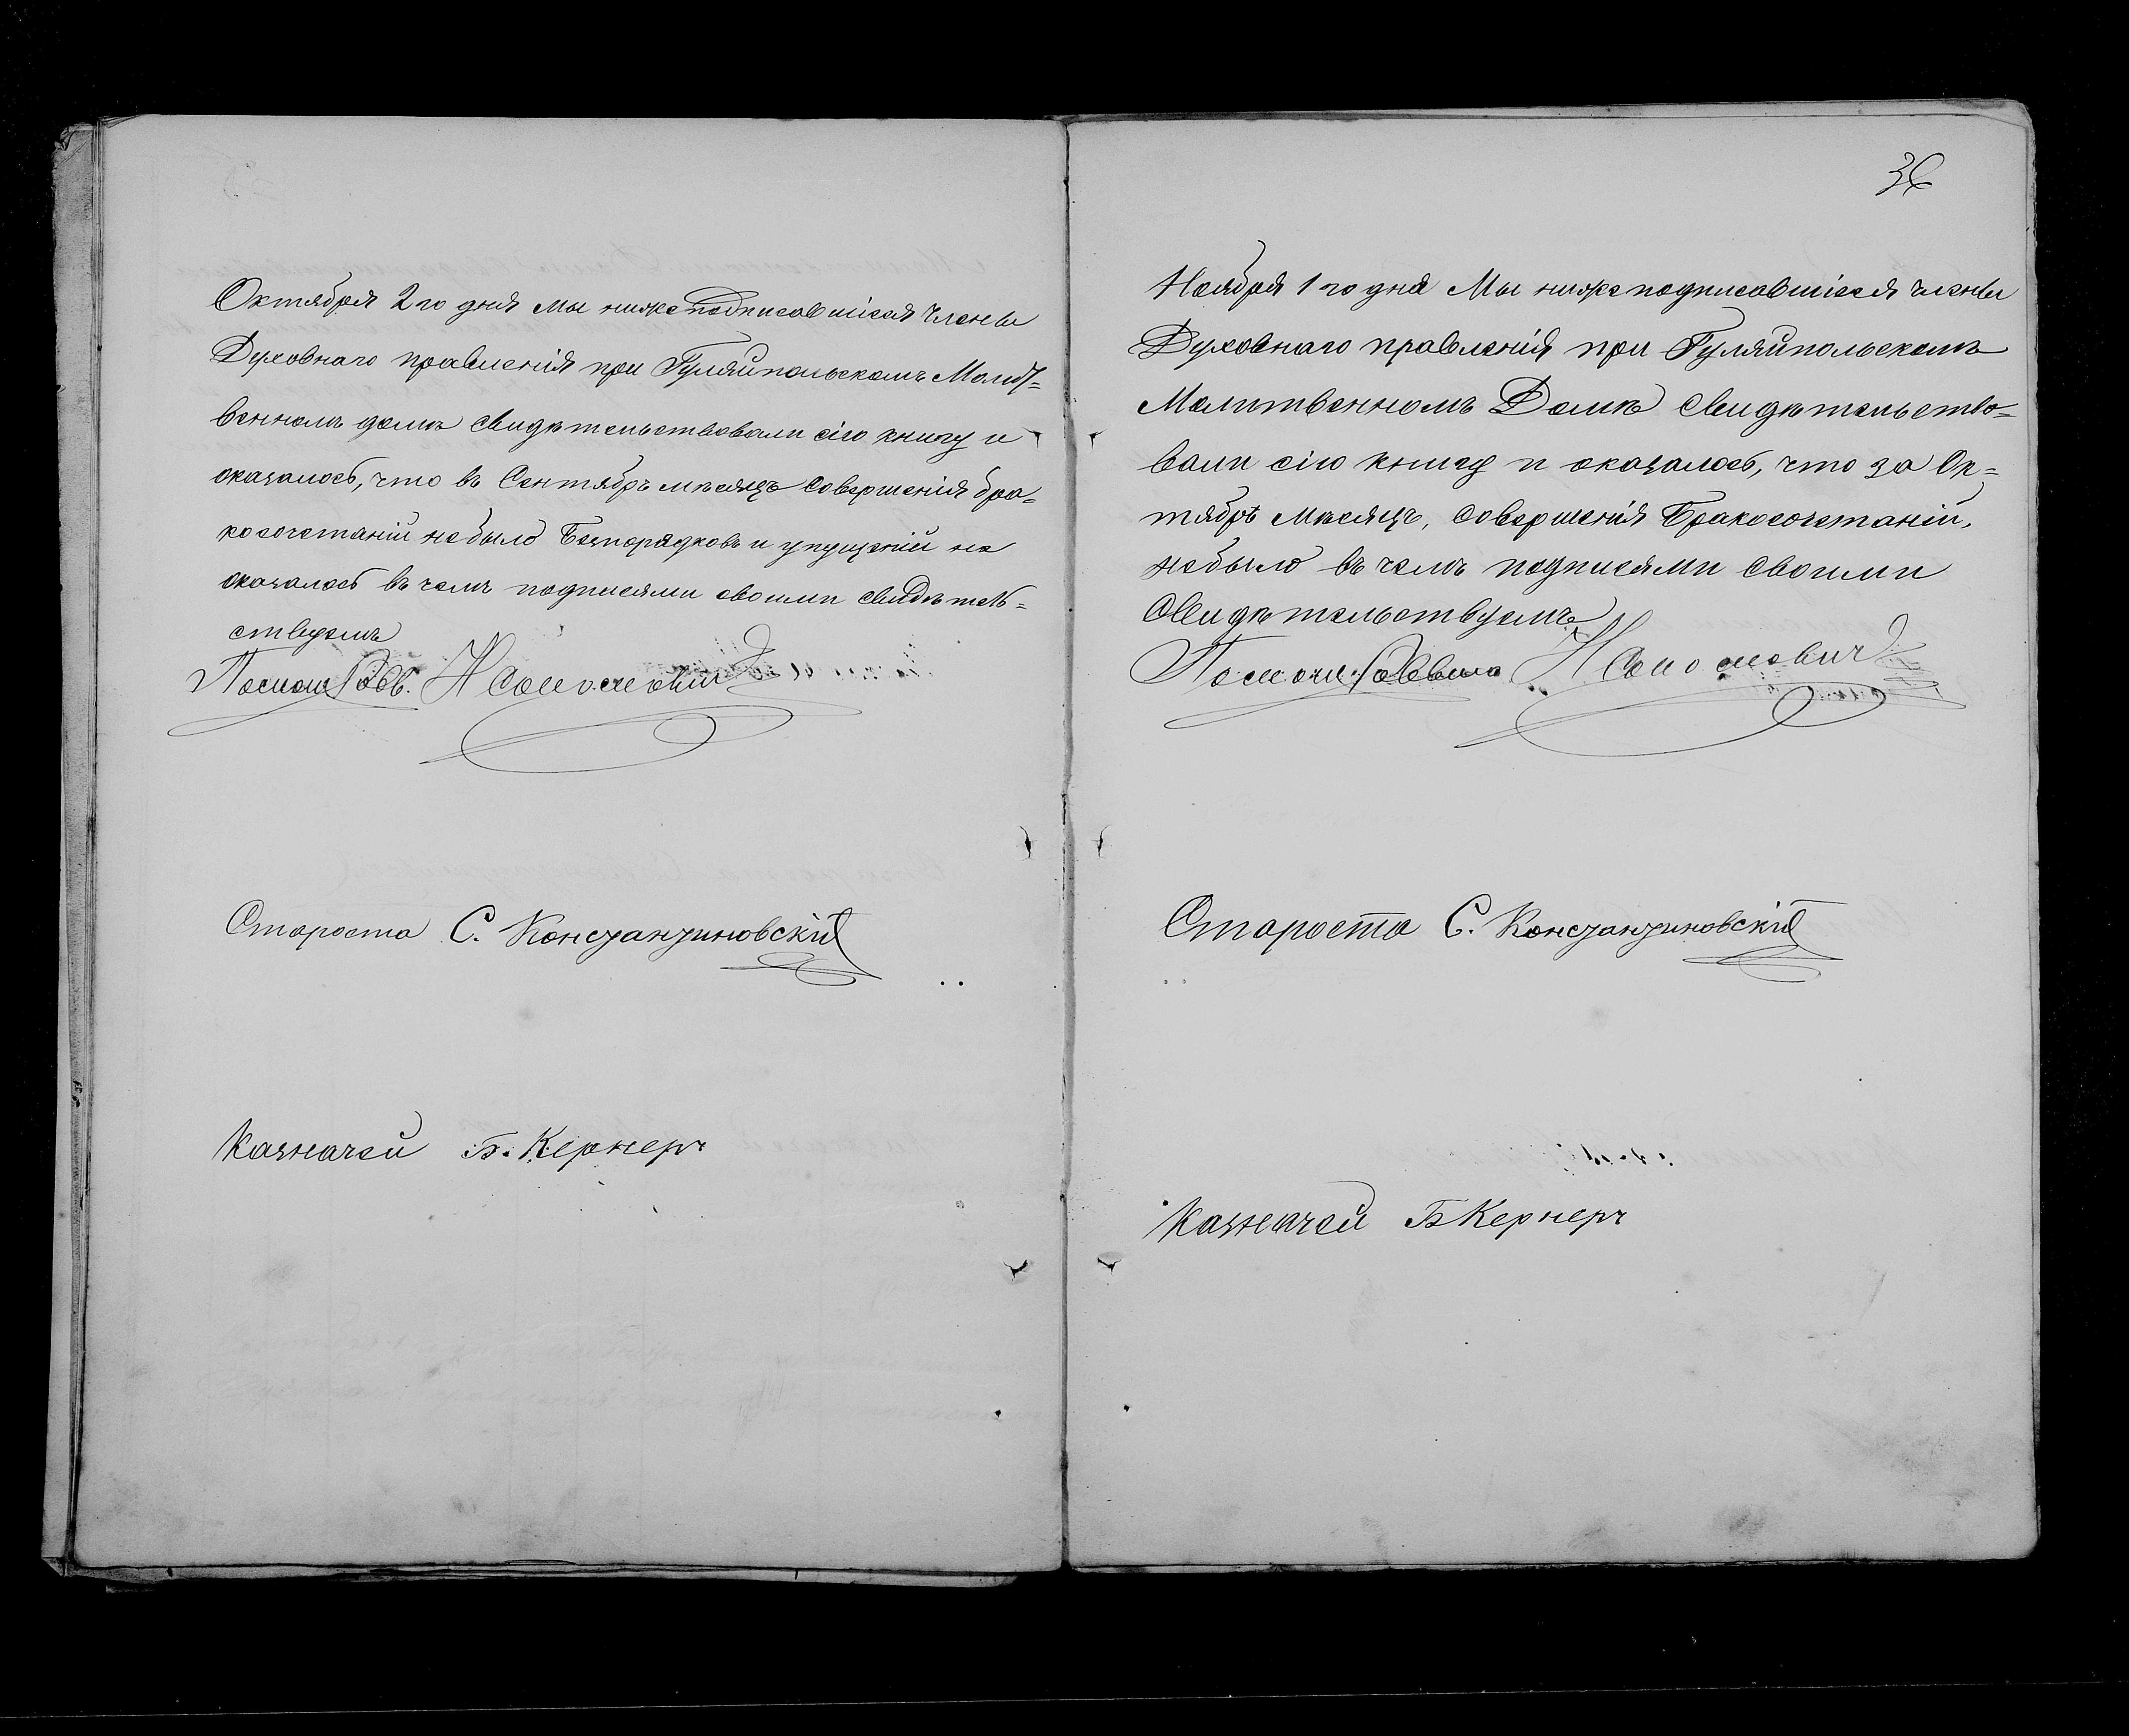 Октября 2го дня мы нижеподписавшіеся Члены
Духовнаго правленія при Гуляйпольскомъ Молит=
венномъ домѣ свидѣтельствовали сію книгу и
оказалось, что въ Сентябрѣ мѣсяцѣ совершенія бра=
косочетаній небыло Безпорядковъ и упущеній не
оказалось въ чемъ подписями своими свидѣтель=
ствуемъ
Помощ. Равв.
Староста С. Константиновскій
Казначей Б. Кернеръ
36
Ноября 1го дня Мы нижеподписавшіеся члены
Духовнаго правленія при Гуляйпольскомъ
Молитвенномъ Домѣ свидѣтельство=
вали сію книгу и оказалось, что за Ок=
тябрь мѣсяцъ, совершенія Бракосочетаній,
небыло въ чемъ подписями своими
Свидѣтельствуемъ
Помощ. Раввина
Староста С. Константиновскій
Казначей Б Кернеръ